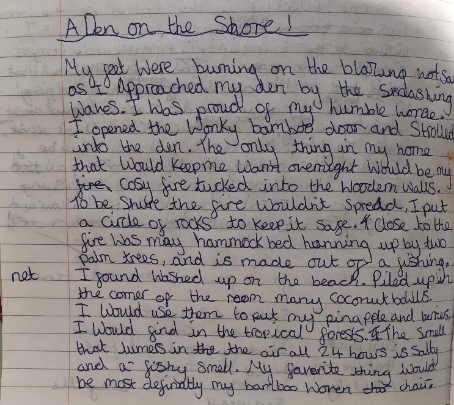 A Den on the Shore!
My feet were burning on the blazing hot sa
as I Approached my den by the
Waves. I was proud of my humble
I opened the Wonky bamboo door and Strolled
into the den. The only thing in my home
that would keep me warm overnight would be my
fire, cosy fire tucked into the Wooden walls.
To be the fire wouldn't spread, I put
a circle of rocks to keep it safe. Close to the
fire was may hammock bed hanning up by two
palm trees, and is made out of a fishing
net I found washed up on the beach. Piled up in
the corner of the room many Coconut
I would use them to put my pineapple and berries,
I would find in the tropical forests. The smell
that in the the air all 24 hours is salty
and a fishy smell. My favorite thing would
be most my bamboo woven chair